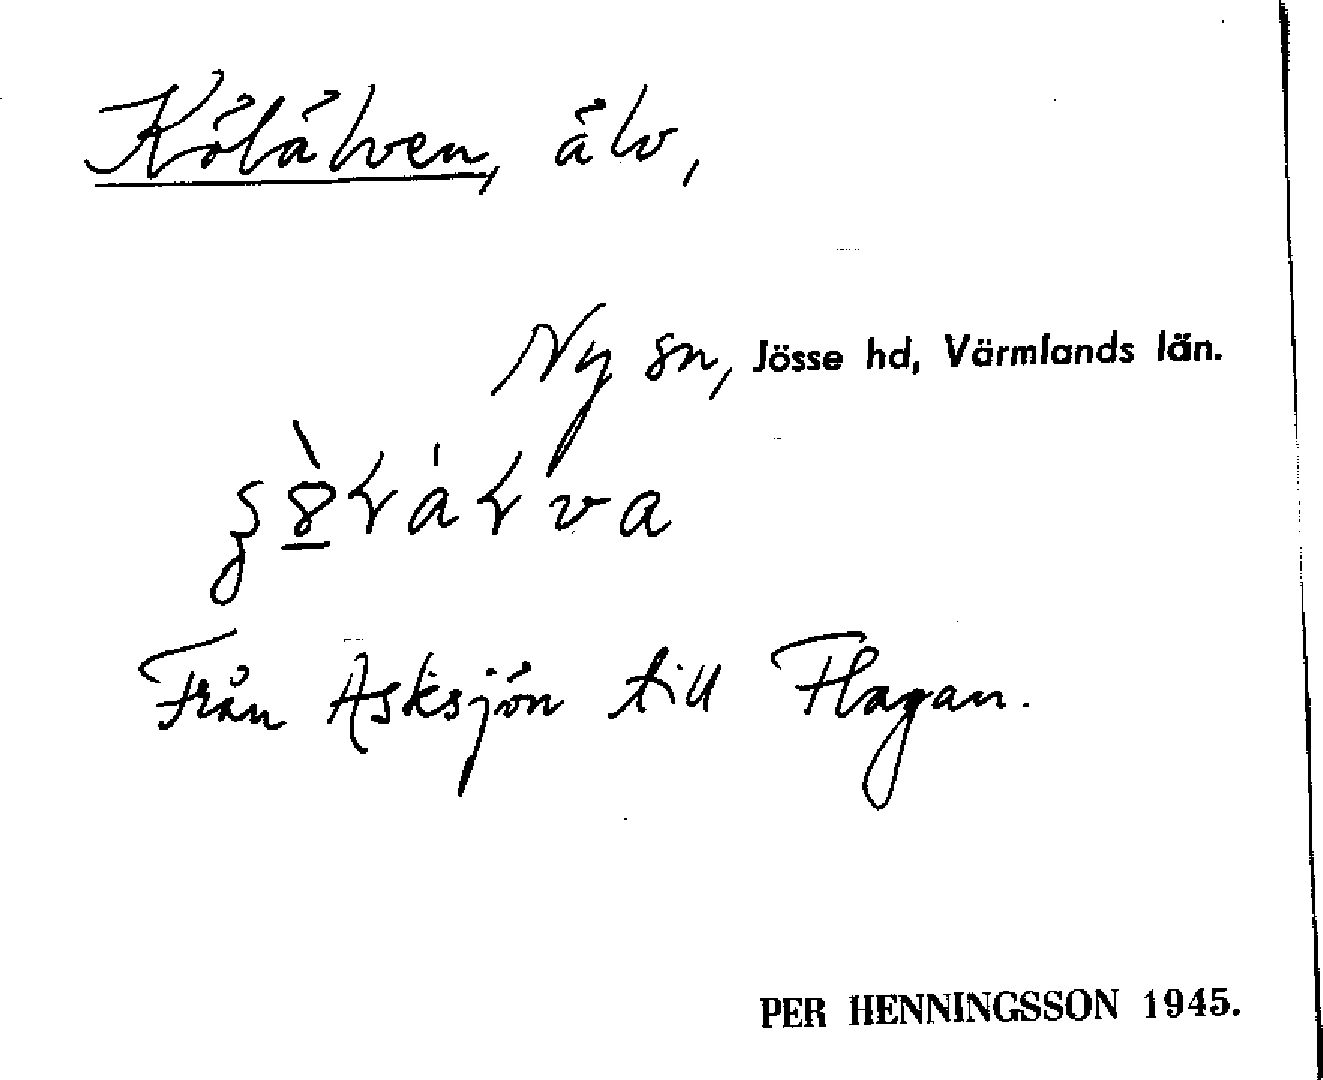 Kölälven, älv,
Ny sn, Jösse hd, Värmlands län.
Från Asksjön till Flagan.
PER HENNINGSSON 1945.